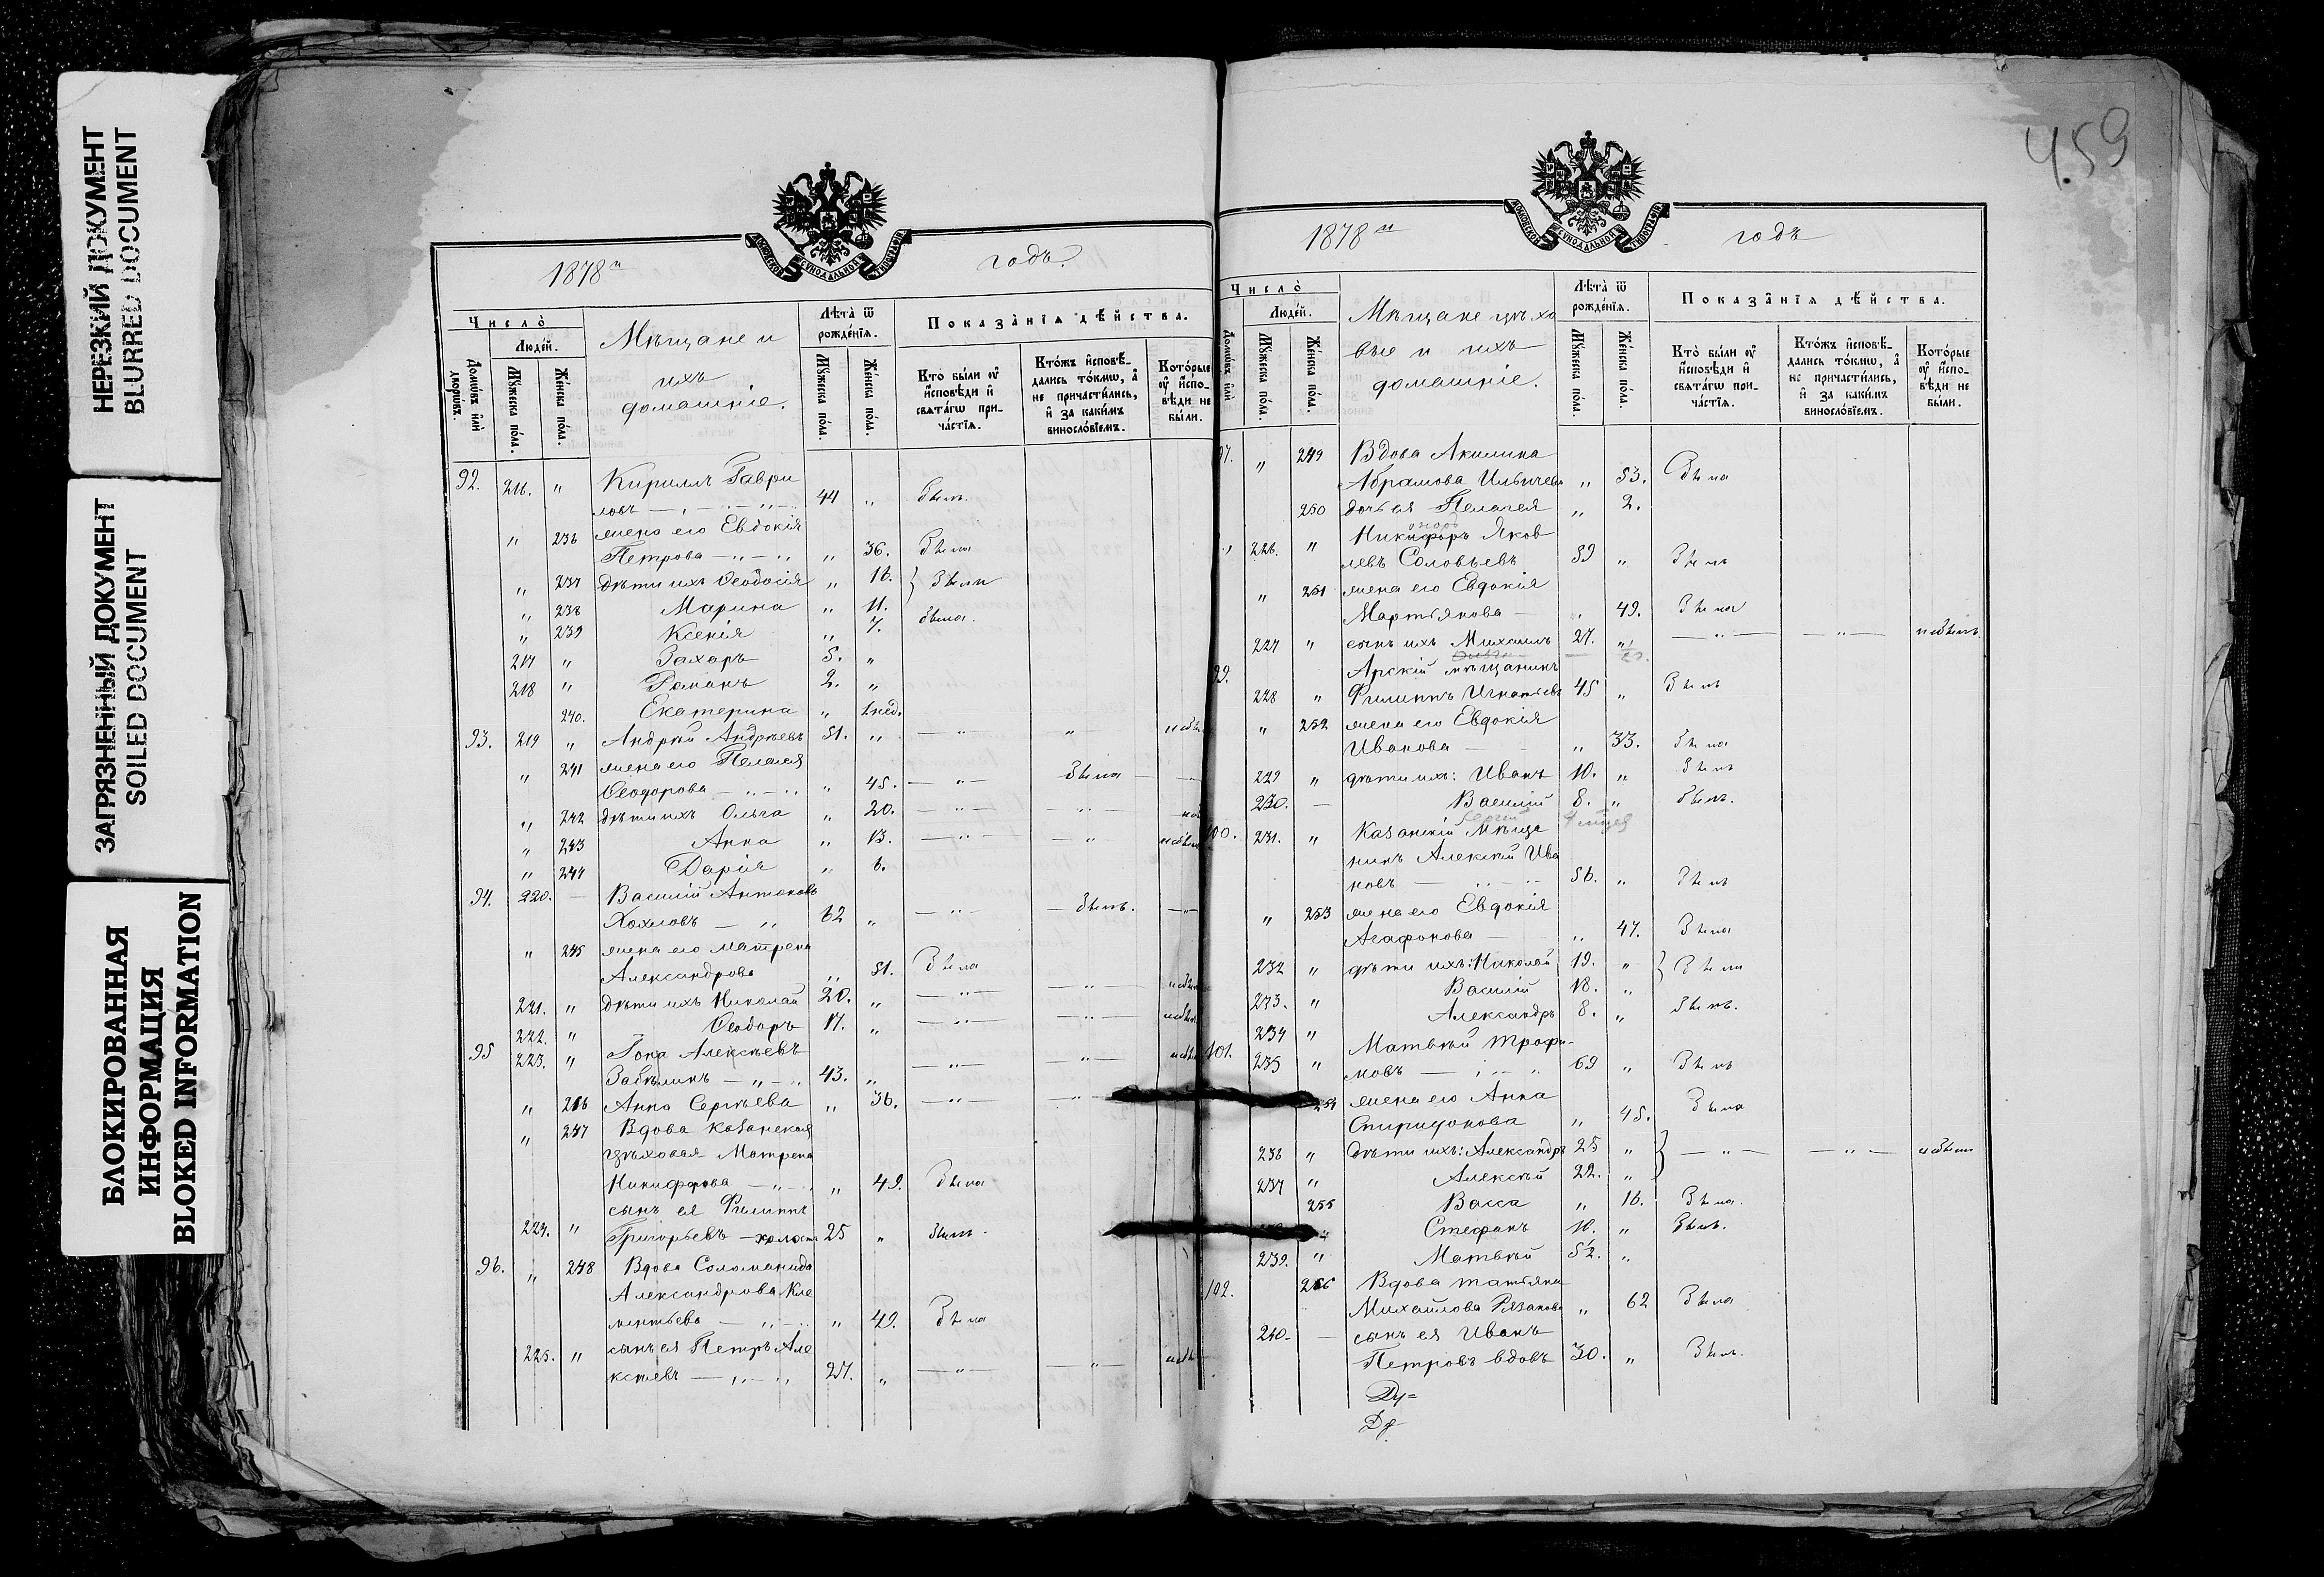 НЕРЕЗКИЙ ДОКУМЕНТ
BLURRED DOCUMENT
ЗАГРЯЗНЕННЫЙ ДОКУМЕНТ
SOILED DOCUMENT
БЛОКИРОВАННАЯ
ИНФОРМАЦИЯ
BLOKED INFORMATION
МОСКОВСКОЙ СѴНОДАЛЬНОЙ ТИПОГРАФІИ
1878 годъ.
Число̀ Мѣщане и Лѣта̀ ѿ Показа̑нїѧ дѣ́йства.
Люде́й. ихъ рожде́нїѧ.
домашніе.
Домѡ́въ и҆лѝ дворѡ́въ. Мꙋ́жеска по́ла. Же́нска по́ла. Мꙋ́жеска по́ла. Же́нска по́ла.
Кто̀ бы́ли ᲂу҆ и҆сповѣ́ди и҆ свѧта́гѡ при-ча́стїѧ.
Кто́жъ и҆сповѣ́-дались то́кмѡ, а҆ не причасти́лись, и҆ за каки́мъ виносло́вїемъ.
Кото́рые ᲂу҆ и҆спо-вѣ́ди не бы́ли.
92. 216. " Кирилъ Гаври
ловъ 44 " былъ.
" 236 жена его Евдокія
Петрова " 36. была
" 237 дѣти ихъ Ѳеодосія " 16. } были
" 238 Марина " 11.
" 239 Ксенія " 7. была.
217 " Захаръ 5. "
218 " Романъ 2. "
240. Екатерина " 1 нед.
93. 219 " Андрѣй Андрѣевъ 51. "
" 241 жена его Пелагея
Ѳеодорова " 45. была
" 242 дѣти ихъ Ольга " 20.
" 243 Анна " 13.
" 244 Дарія " 6.
94. 220. — Василій Антоновъ
Хохловъ 62 " былъ.
" 245 жена его Матрена
Александрова " 51. была
221. " дѣти ихъ Николай 20. "
222. " Ѳеодоръ 17. "
95 223. " Іона Алексѣевъ
Забѣлинъ 43. "
" 246 Анна Сергѣева " 36.
" 247 Вдова Казанская
цѣховая Матрена
Никифорова " 49. была
сынъ ея Филиппъ
224. " Григорьевъ холостъ 25 " былъ.
96. " 248 Вдова Соломанида
Александрова Кле
ментьева " 49. была
225. " сынъ ея Петръ Але
ксѣевъ 27. "
459
МОСКОВСКОЙ СѴНОДАЛЬНОЙ ТИПОГРАФІИ
1878 годъ
Число̀ Мѣщане цѣхо Лѣта̀ ѿ Показа̑нїѧ дѣ́йства.
Люде́й. вые и ихъ рожде́нїѧ.
домашніе.
Домѡ́въ и҆лѝ Мꙋ́жеска по́ла. Же́нска по́ла. Мꙋ́жеска по́ла. Же́нска по́ла.
Кто̀ бы́ли ᲂу҆ и҆сповѣ́ди и҆ свѧта́гѡ при-ча́стїѧ.
Кто́жъ и҆сповѣ́-дались то́кмѡ, а҆ не причасти́лись, и҆ за каки́мъ виносло́вїемъ.
Кото́рые ᲂу҆ и҆спо-вѣ́ди не бы́ли.
97. " 249 Вдова Акилина
Абрамова Ильичева " 53. была
250 дочь ея Пелагея " 2.
226. " Никифоръ Яков
левъ Соловьевъ 59 " былъ
" 251 жена его Евдокія
Мартьянова " 49. была
227 " сынъ ихъ Михаилъ 27. " небылъ.
99. Арскій мѣщанинъ
228 " Филиппъ Игнатьевъ 45 " былъ
" 252 жена его Евдокія
Иванова " 33. была
229 " дѣти ихъ: Иванъ 10. " былъ
230. — Василій 8. " былъ.
Сергій
100. 231. " Казанскій Мѣща
нинъ Алексѣй Ива
новъ 56. " былъ
" 253 жена его Евдокія
Агафонова " 47. была
232 " дѣти ихъ: Николай 19. " } были
233. " Василій 18. "
234 " Александръ 8. " былъ.
101. 235 " Матвѣй Трофи-
мовъ 69 " былъ
254 жена его Анна
Спиридонова " 45. была
236 " дѣти ихъ: Александръ 25 " } небыли
237 " Алексѣй 22. "
255 Васса " 16. была.
" Стефанъ 10. " былъ.
239. " Матвѣй 5½. "
102. 256 Вдова Татьяна
Михайлова Рязанова " 62 была
240. — сынъ ея Иванъ
Петровъ вдовъ 30. " былъ.